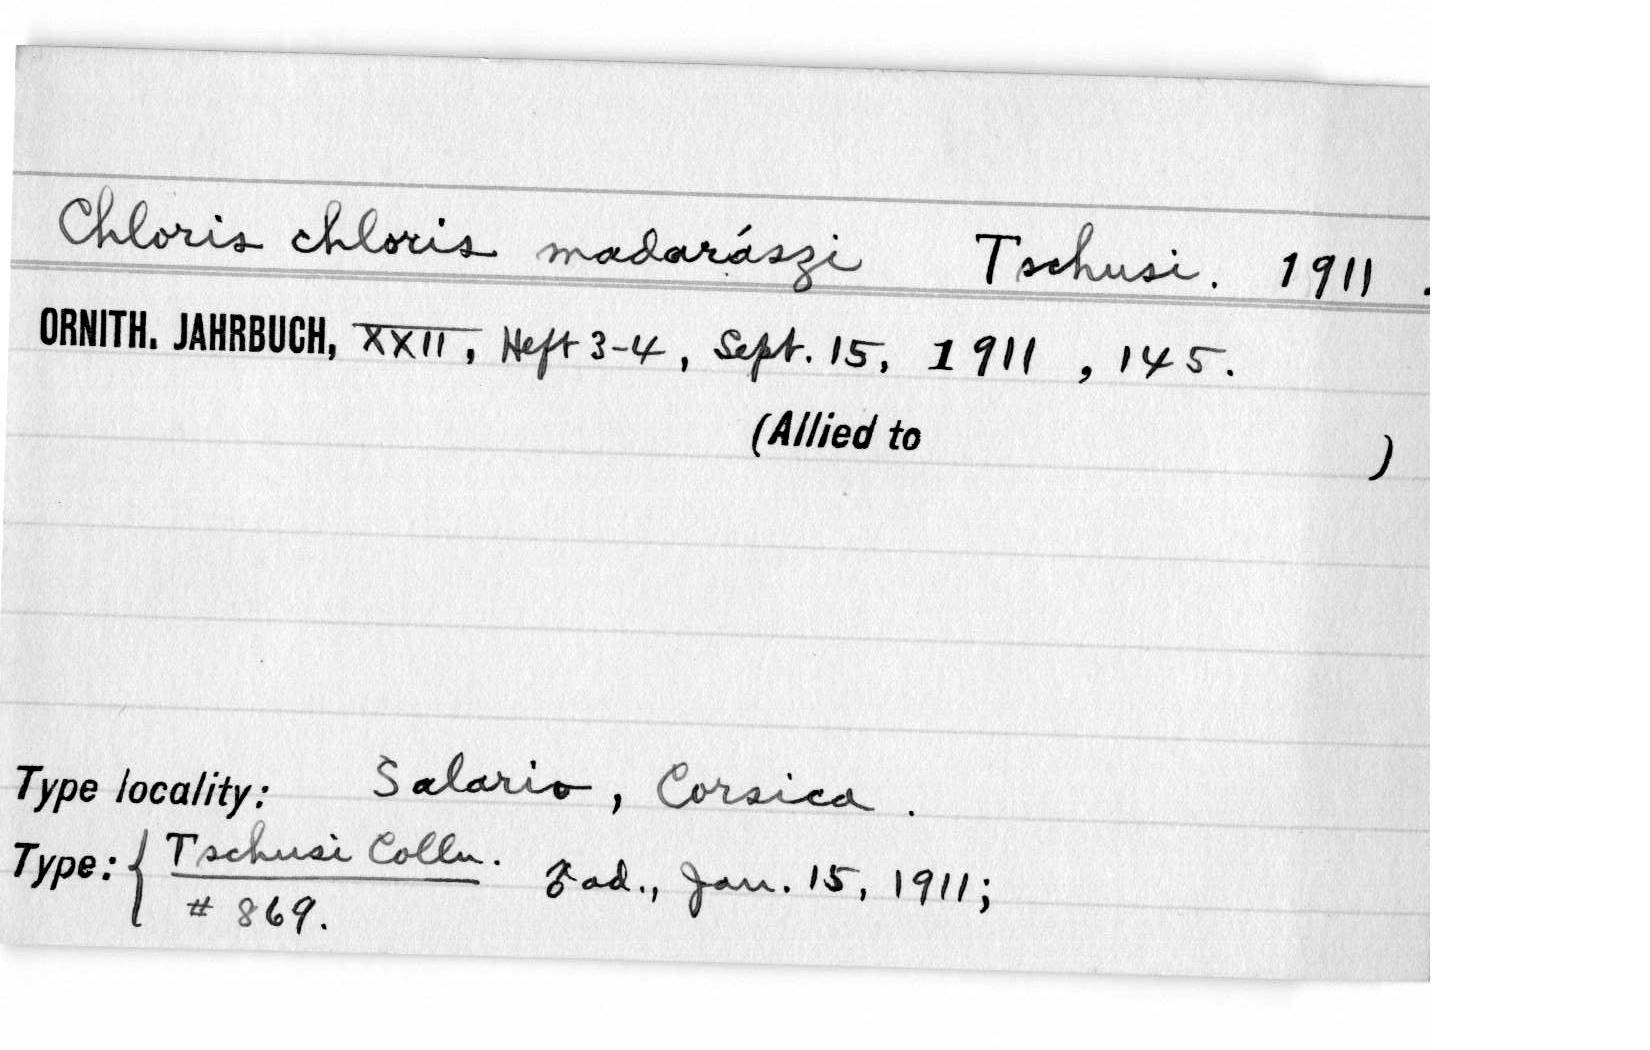 Chloris chloris madarászi Tschusi. 1911.
ORNITH. JAHRBUCH, XXII, Heft 3-4, Sept. 15, 1911, 145.
(Allied to )
Type locality: Salario, Corsica.
Type: { Tschusi Colln. ad., Jan. 15, 1911;
# 869.